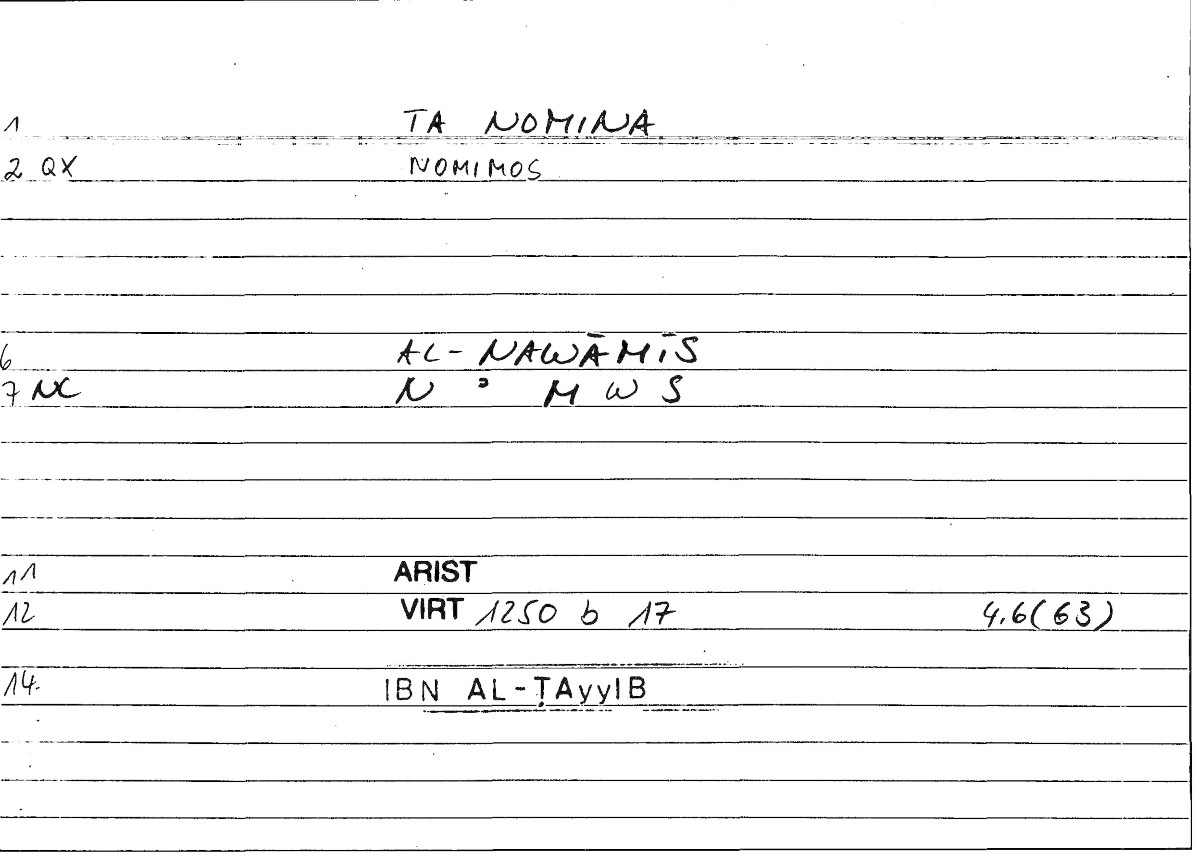 1 TA NOMINA
2 QX NOMIMOS
6 AL-NAWĀMĪS
7 NC N ʾ M W S
11 ARIST
12 VIRT 1250 b 17 4.6(63)
14. IBN AL-ṬAyyIB